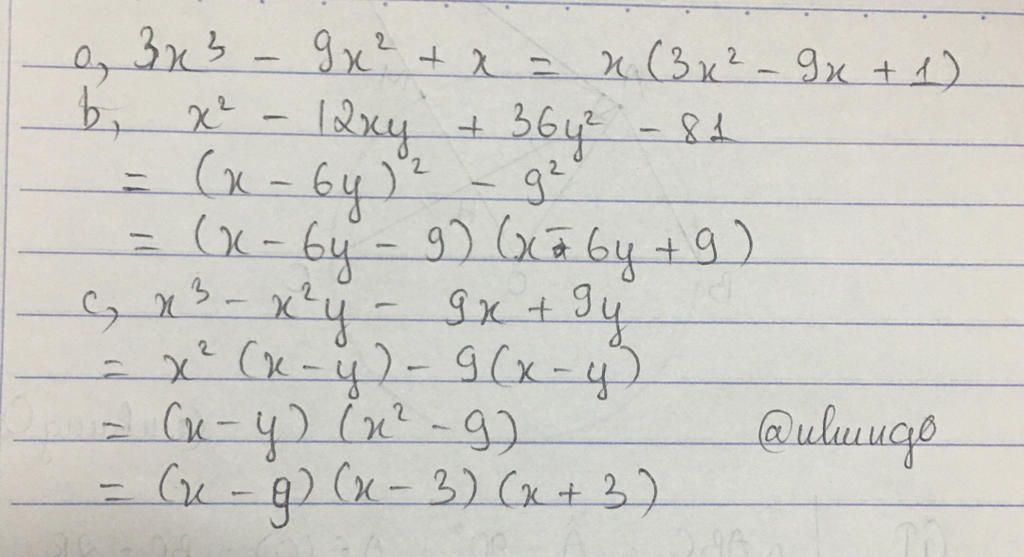 a, 3x³ - 9x² + x = x(3x² - 9x + 1)
b, x² - 12xy + 36y² - 81
= (x - 6y)² - 9²
= (x - 6y - 9)(x - 6y + 9)
c, x³ - x²y - 9x + 9y
= x²(x - y) - 9(x - y)
= (x - y)(x² - 9)
= (x - y)(x - 3)(x + 3)